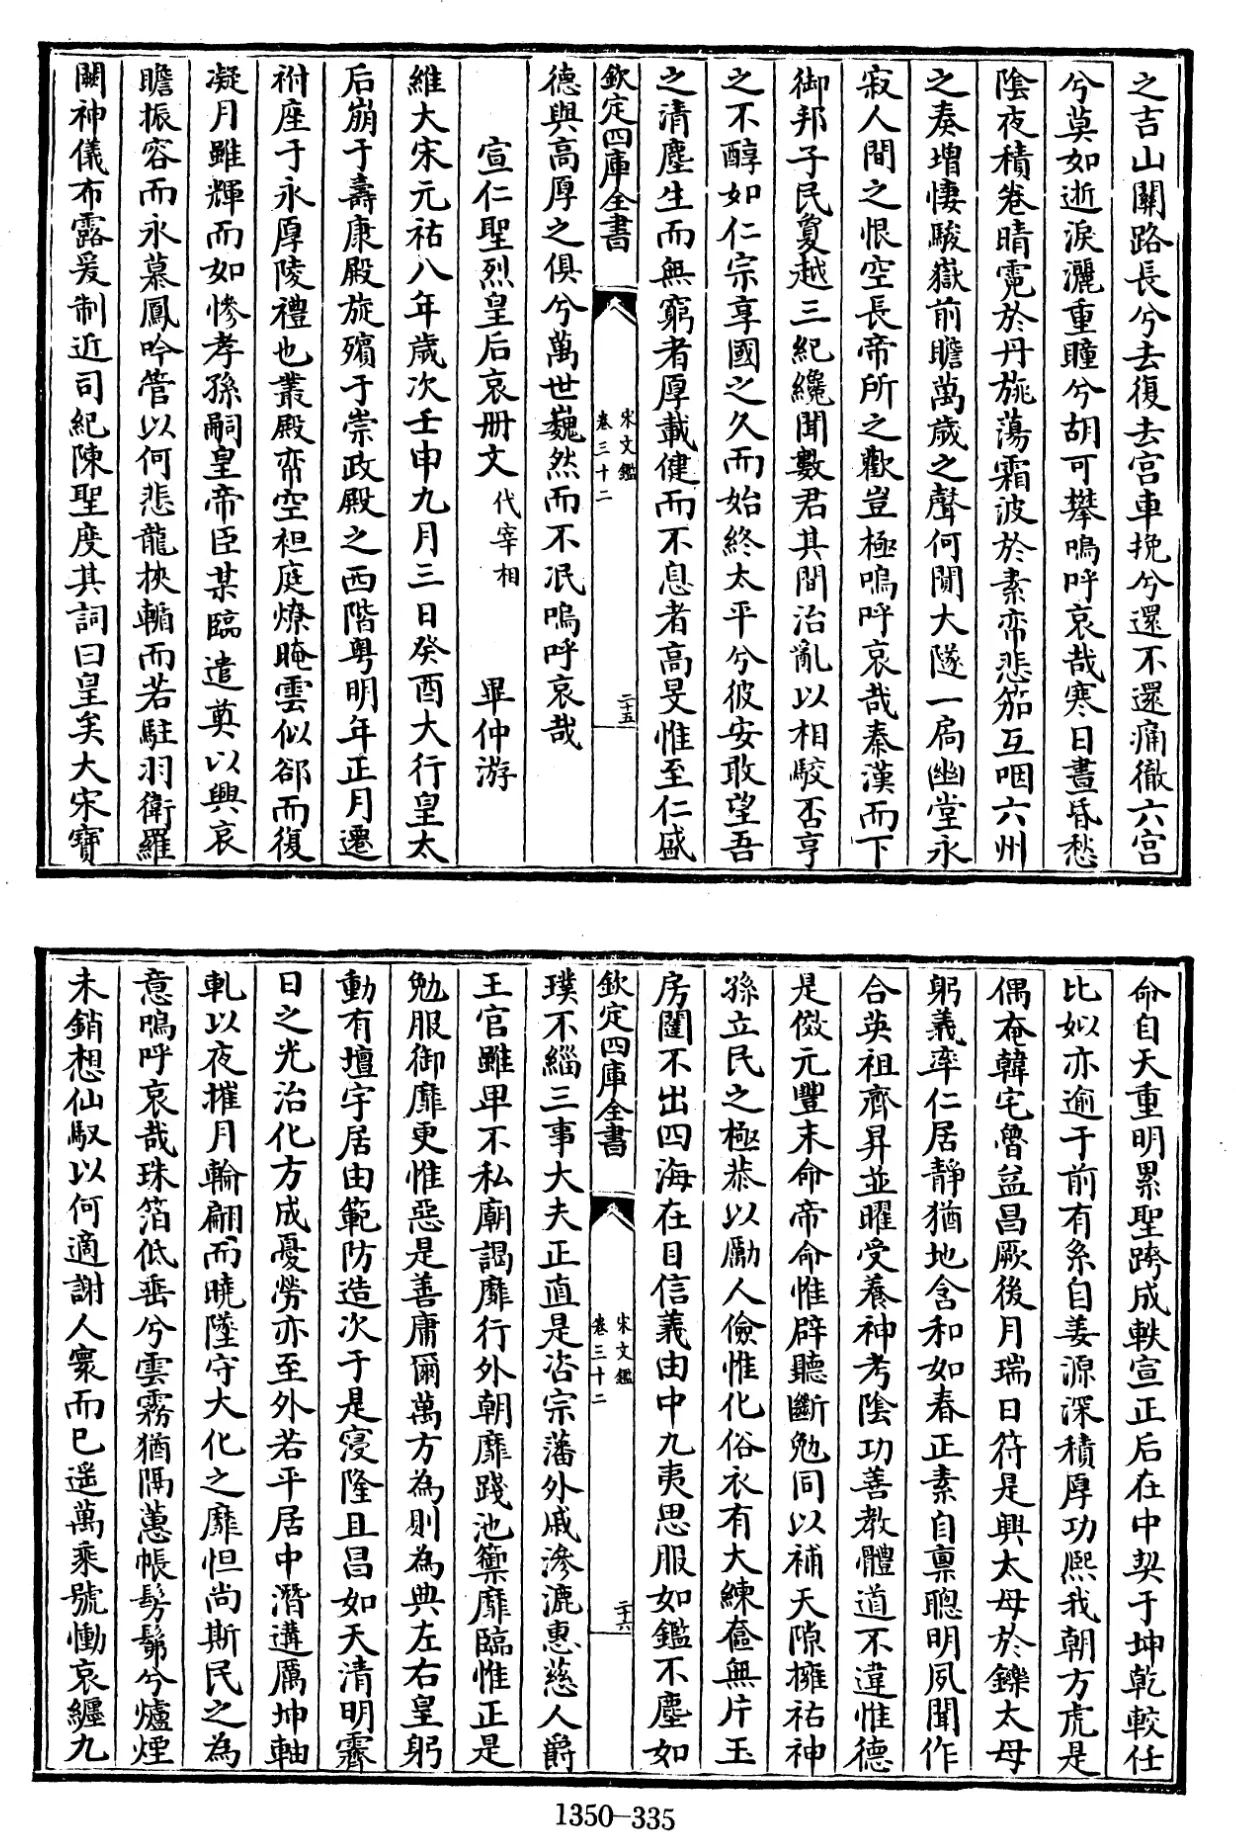 之吉山關路長兮去復去宫車挽兮還不還痛徹六宫
兮莫如逝淚灑重瞳兮胡可攀嗚呼哀哉寒日晝昏愁
陰夜積卷晴霓於丹旐蕩霜波於素帟悲笳互咽六州
之奏增悽駿嶽前瞻萬歲之聲何閴大隧一扃幽堂永
寂人間之恨空長帝所之歡豈極嗚呼哀哉秦漢而下
御邦子民夐越三紀纔聞數君其間治亂以相駮否亨
之不醇如仁宗享國之久而始終太平兮彼安敢望吾
之清塵生而無窮者厚載健而不息者高旻惟至仁盛
欽定四庫全書
宋文鑑
卷三十二
二十五
德與高厚之俱兮萬世巍然而不泯嗚呼哀哉
宣仁聖烈皇后哀册文代宰相 畢仲游
維大宋元祐八年歲次壬申九月三日癸酉大行皇太
后崩于壽康殿旋殯于崇政殿之西階粤明年正月遷
祔座于永厚陵禮也叢殿帟空袒庭燎晻雲似郤而復
凝月雖輝而如慘孝孫嗣皇帝臣某臨遣奠以興哀
瞻振容而永慕鳳吟管以何悲龍挾輴而若駐羽衛羅
闕神儀布露爰制近司紀陳聖度其詞曰皇矣大宋寶
命自天重明累聖跨成軼宣正后在中契于坤乾較任
比姒亦逾于前有系自姜源深積厚功熈我朝方虎是
偶奄韓宅魯益昌厥後月瑞日符是興太母於鑠太母
躬義率仁居静猶地含和如春正素自禀聰明夙聞作
合英祖齊昇並曜受養神考陰功善教體道不違惟德
是儆元豐末命帝命惟辟聽斷勉同以補天隙擁祐神
孫立民之極恭以勵人儉惟化俗衣有大練奩無片玉
房闥不出四海在目信義由中九夷思服如鑑不塵如
欽定四庫全書
宋文鑑
卷三十二
二十六
璞不緇三事大夫正直是咨宗藩外戚滲漉惠慈人爵
王官雖卑不私廟謁靡行外朝靡踐池籞靡臨惟正是
勉服御靡更惟惡是善庸爾萬方為則為典左右皇躬
動有壇宇居由範防造次于是寖隆且昌如天清明霽
日之光治化方成憂勞亦至外若平居中潛遘厲坤軸
軋以夜摧月輪翩而曉墜守大化之靡怛尚斯民之為
意嗚呼哀哉珠箔低垂兮雲霧猶隔蕙帳髣髴兮爐煙
未銷想仙馭以何適謝人寰而已遥萬乘號慟哀纒九
1350-335